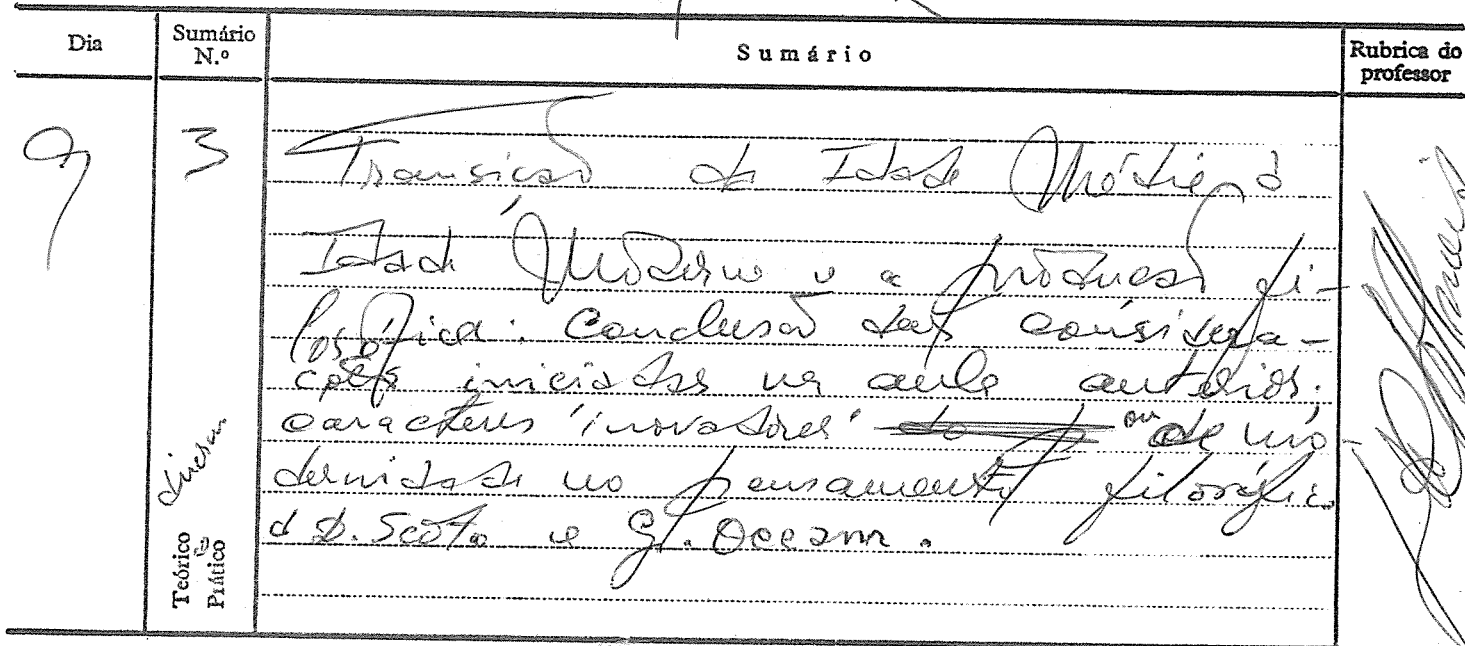 Dia
Sumário N.º
Sumário
Rubrica do professor
9
3
Transição da Idade Média à
Idade Moderna e a produção fi-
losófica: Conclusão das considera-
ções iniciadas na aula anterior;
caracteres 'inovadores' ou de mo-
dernidade no pensamento filosófico
d D. Scoto e G. Occam.
Teórico e Prático